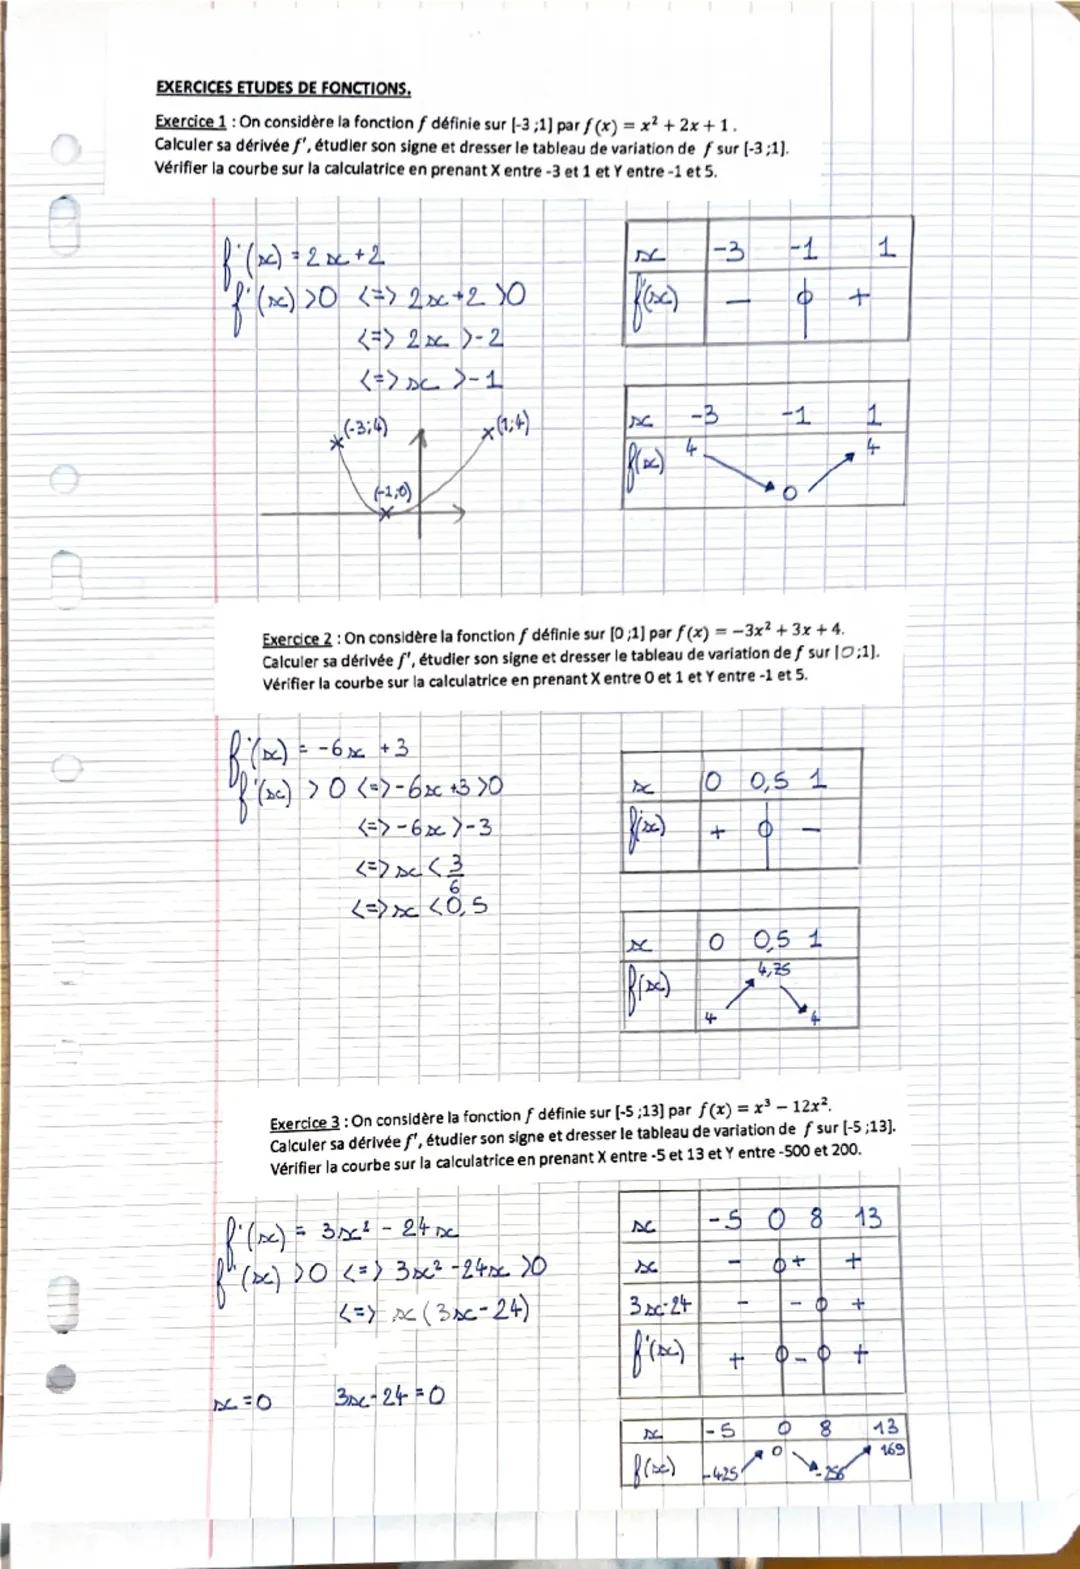 EXERCICES ETUDES DE FONCTIONS.
Exercice 1 : On considère la fonction f définie sur [-3 ;1] par f(x) = x² + 2x + 1.
Calculer sa dérivée f', étudier son signe et dresser le tableau de variation de f sur [-3 ;1].
Vérifier la courbe sur la calculatrice en prenant X entre -3 et 1 et Y entre -1 et 5.
f'(x) = 2x+2
f'(x) >0 <=> 2x+2 >0
<=> 2x >-2
<=> x >-1
(-3;4) (1;4)
(-1;0)
x -3 -1 1
f'(x) - 0 +
x -3 -1 1
f(x) 4 0 4
Exercice 2 : On considère la fonction f définie sur [0 ;1] par f(x) = −3x² + 3x + 4.
Calculer sa dérivée f', étudier son signe et dresser le tableau de variation de f sur [0;1].
Vérifier la courbe sur la calculatrice en prenant X entre 0 et 1 et Y entre -1 et 5.
f'(x) = -6x +3
f'(x) >0 <=> -6x +3 >0
<=> -6x >-3
<=> x < 3/6
<=> x <0,5
x 0 0,5 1
f'(x) + 0 -
x 0 0,5 1
f(x) 4 4,75 4
Exercice 3 : On considère la fonction f définie sur [-5 ;13] par f(x) = x³ − 12x².
Calculer sa dérivée f', étudier son signe et dresser le tableau de variation de f sur [-5 ;13].
Vérifier la courbe sur la calculatrice en prenant X entre -5 et 13 et Y entre -500 et 200.
f'(x) = 3x² - 24x
f'(x) >0 <=> 3x² -24x >0
<=> x(3x-24)
x=0 3x-24=0
x -5 0 8 13
x - 0 + +
3x-24 - - 0 +
f'(x) + 0 - 0 +
x -5 0 8 13
f(x) -425 0 -256 169